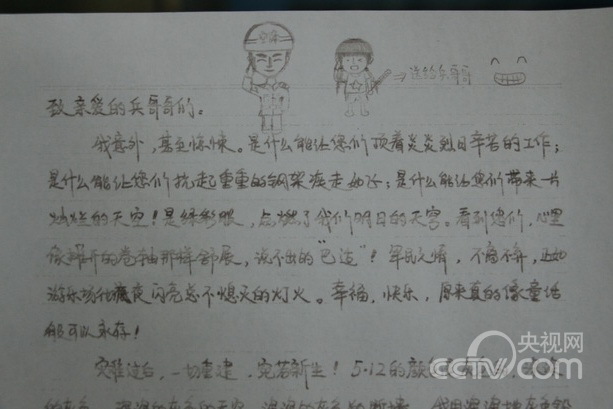 空降
→送给兵哥哥
致亲爱的兵哥哥的。
我意外,甚至惊悚。是什么能让您们顶着炎炎烈日辛苦的工作;
是什么能让您们扛起重重的钢架疾走如飞;是什么能让您们带来一片
灿烂的天空!是绿彩服,点燃了我们明日的天宫。看到您们,心里
像展开的卷轴那样舒展,说不出的"巴适"!军民之情,不离不弃,正如
游乐场化夜闪亮总不熄灭的灯火。幸福,快乐,原来真的像童话
般可以永存!
灾难过后,一切重建,宛若新生!5·12的颜
央视网
CCTV.com